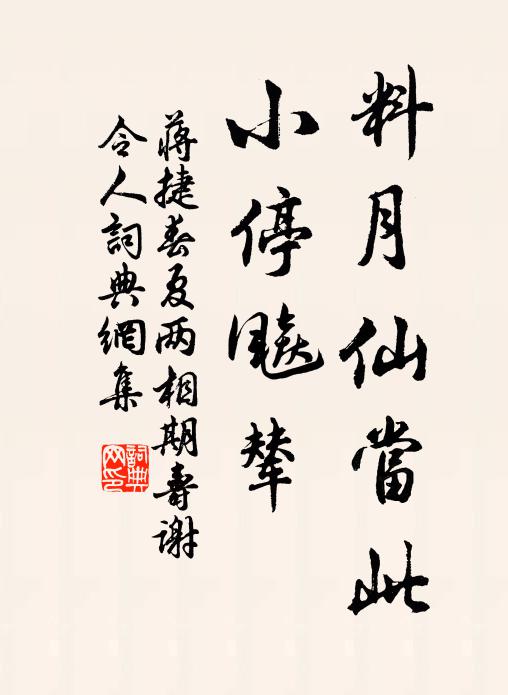 料月仙當此
小停飈輦
蔣捷春夏两相期壽謝
令人詞典網集
詞典
网印